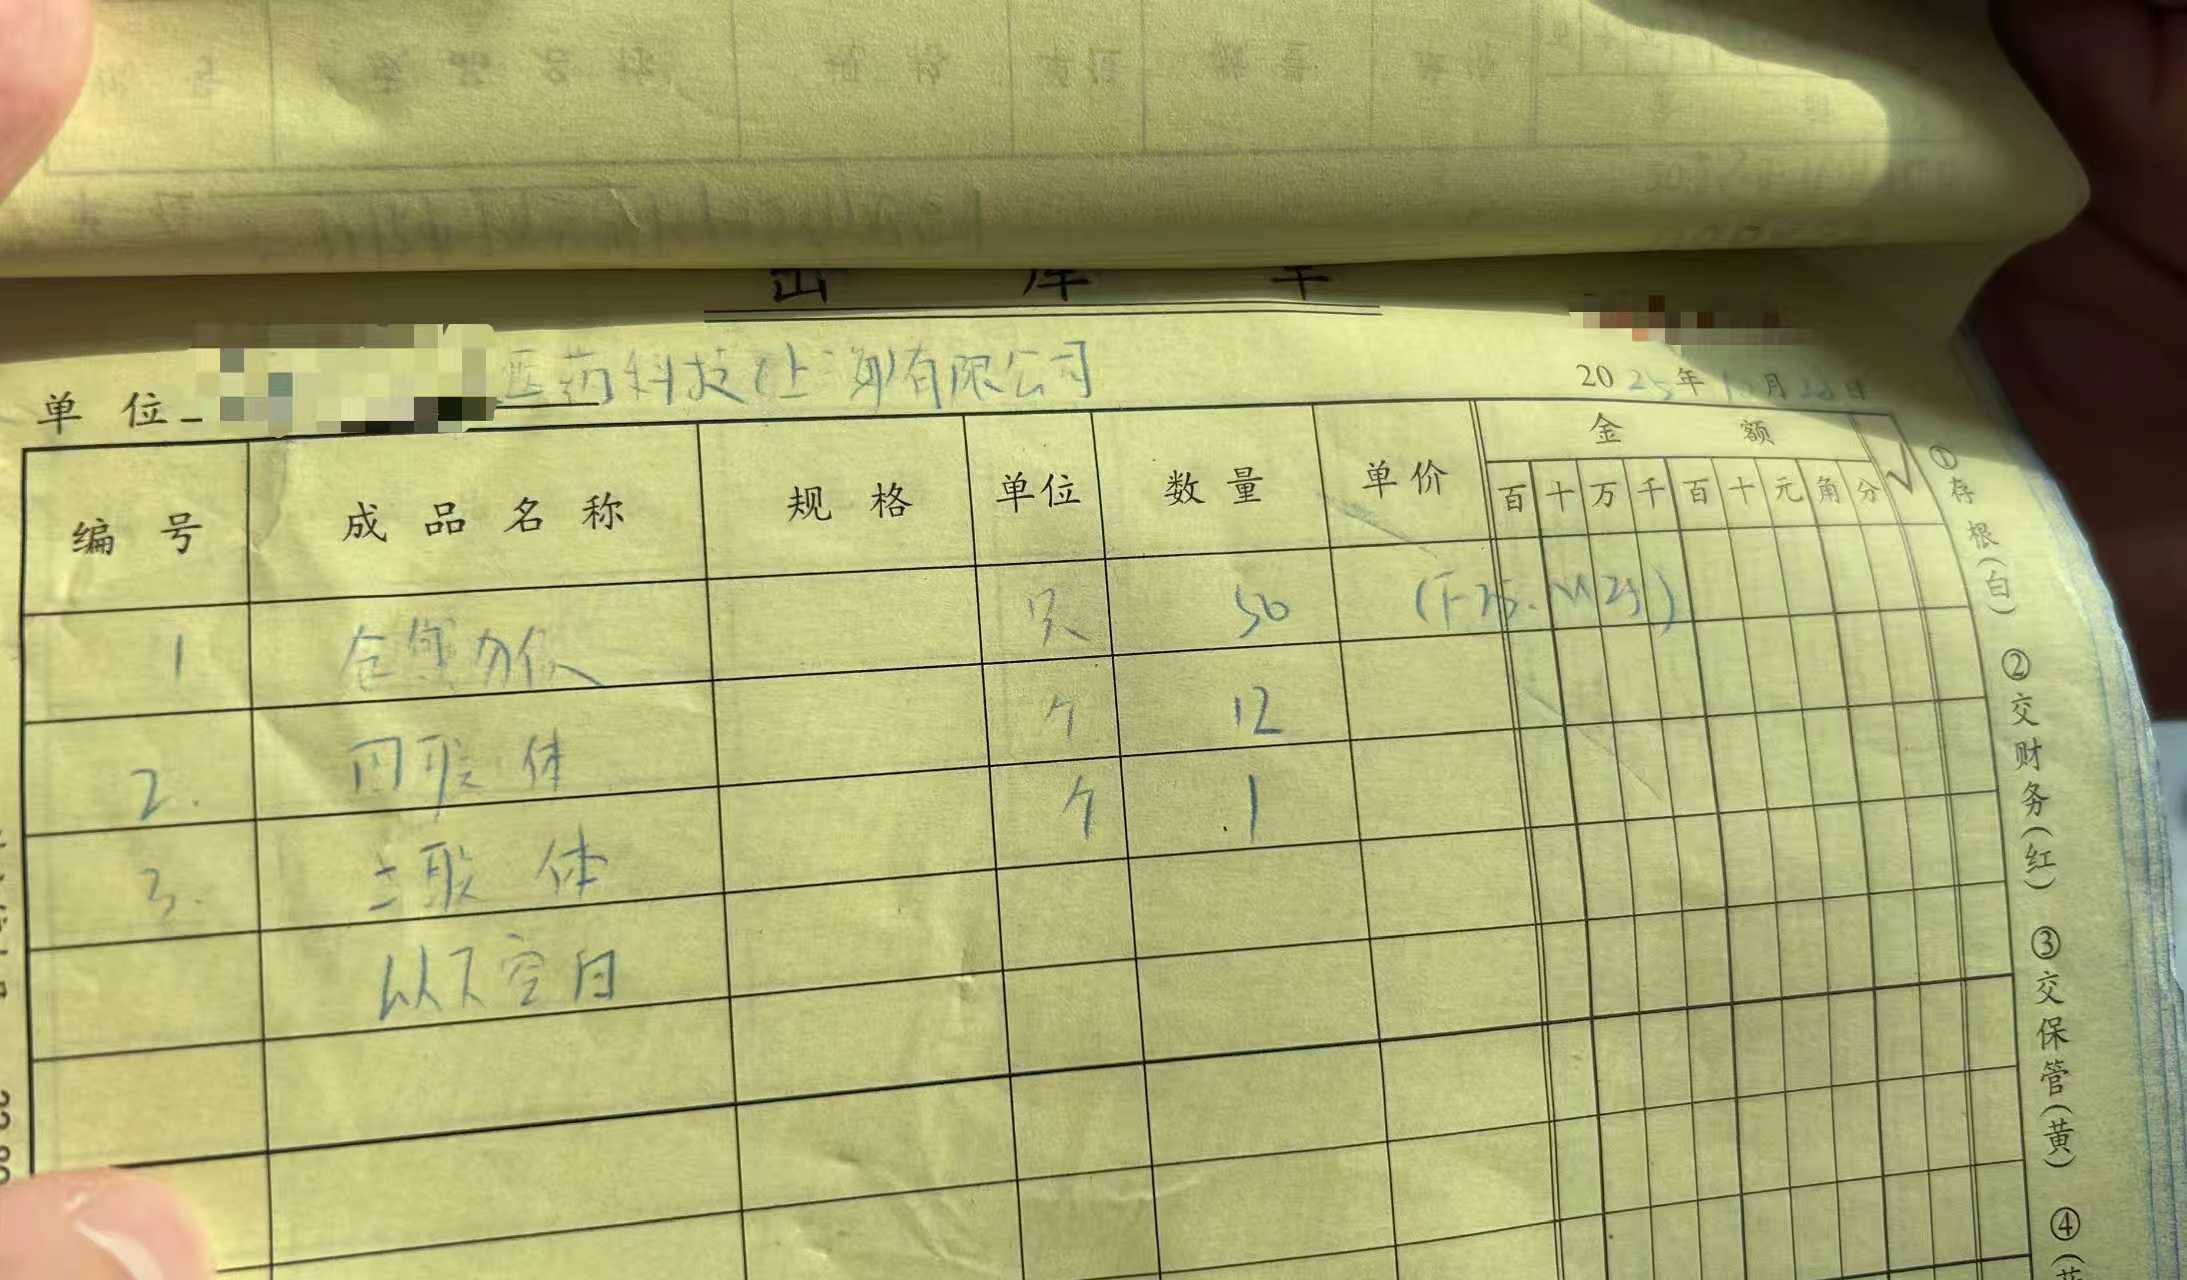 出 库 单
单 位 医药科技(上海)有限公司
2025年 月28日
编 号 成 品 名 称 规 格 单位 数 量 单价 金 额 √
百 十 万 千 百 十 元 角 分
1 只 50
2. 四联体 个 12
3. 三联体 个 1
以下空白
①存根(白) ②交财务(红) ③交保管(黄) ④